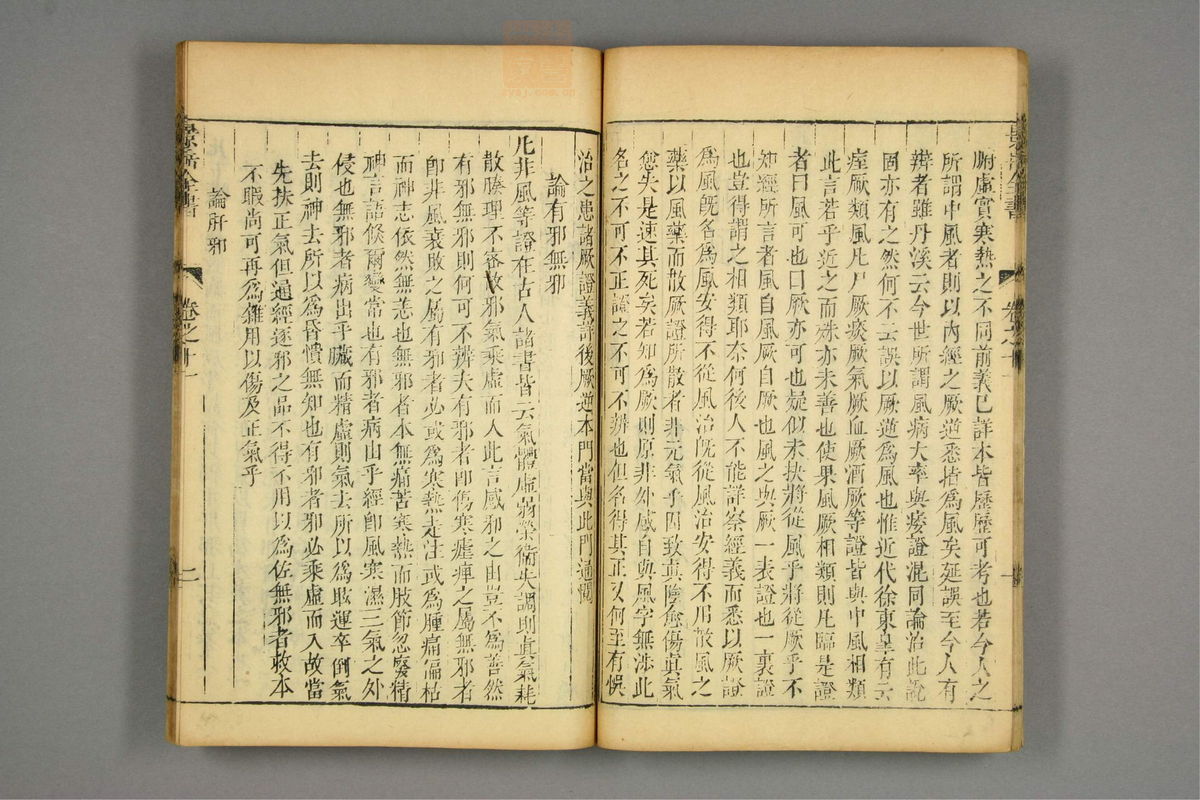 腑虛實寒熱之不同前義已詳本皆歷歷可考也若今人之
所謂中風者則以內經之厥逆悉皆為風矣延誤至今人有
辨者雖丹溪云今世所謂風病大率與痿證混同論治此說
固亦有之然何不云誤以厥逆為風也惟近代徐東皐有云
痓厥類風凡尸厥痰厥氣厥血厥酒厥等證皆與中風相類
此言若乎近之而殊亦未善也使果風厥相類則凡臨是證
者曰風可也曰厥亦可也疑似未抉將從風乎將從厥乎不
知經所言者風自風厥自厥也風之與厥一表證也一裏證
也豈得謂之相類耶奈何後人不能詳察經義而悉以厥證
為風旣名為風安得不從風治旣從風治安得不用散風之
藥以風藥而散厥證所散者非元氣乎因致眞陰愈傷眞氣
愈失是速其死矣若知為厥則原非外感自與風字無涉此
名之不可不正證之不可不辨也但名得其正又何至有悞
治之患諸厥證義詳後厥逆本門當與此門通閱
論有邪無邪
凡非風等證在古人諸書皆云氣體虛弱榮衛失調則眞氣耗
散腠理不密故邪氣乘虛而入此言感邪之由豈不為善然
有邪無邪則何可不辨夫有邪者卽傷寒瘧痺之屬無邪者
卽非風衰敗之屬有邪者必或為寒熱走注或為腫痛偏枯
而神志依然無恙也無邪者本無痛苦寒熱而肢節忽廢精
神言語倏爾變常也有邪者病由乎經卽風寒濕三氣之外
侵也無邪者病出乎臟而精虛則氣去所以為眩運卒倒氣
去則神去所以為昏憒無知也有邪者邪必乘虛而入故當
先扶正氣但通經逐邪之品不得不用以為佐無邪者救本
不暇尚可再為雜用以傷及正氣乎
論所邪
景岳全書
卷之十一
二